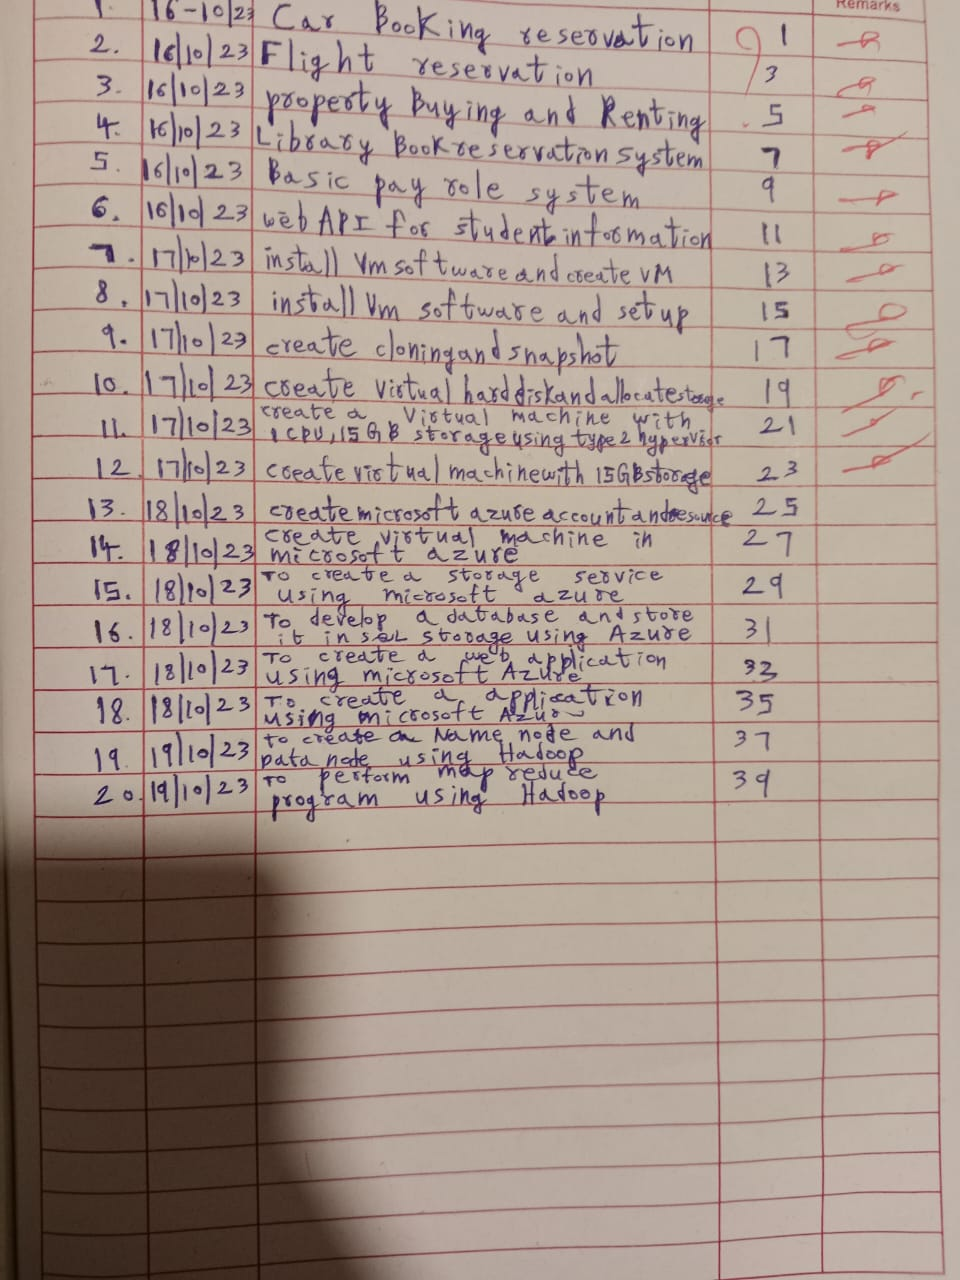 Remarks
1. 16-10/23 Car Booking reservation 1
2. 16/10/23 Flight reservation 3
3. 16/10/23 property Buying and Renting 5
4. 16/10/23 Library Book reservation system 7
5. 16/10/23 Basic pay role system 9
6. 16/10/23 web API for student information 11
7. 17/10/23 install Vm software and create VM 13
8. 17/10/23 install Vm software and set up 15
9. 17/10/23 create cloning and snapshot 17
10. 17/10/23 create virtual hard disk and allocate storage 19
11. 17/10/23 create a Virtual machine with 21
1 CPU, 15 GB storage using type 2 hypervisor
12. 17/10/23 create virtual machine with 15GB storage 23
13. 18/10/23 create microsoft azure account and resource 25
14. 18/10/23 create virtual machine in 27
microsoft azure
15. 18/10/23 To create a storage service 29
using microsoft azure
16. 18/10/23 To develop a database and store 31
it in SQL storage using Azure
17. 18/10/23 To create a web application 33
using microsoft Azure
18. 18/10/23 To create a application 35
using microsoft Azure
19. 19/10/23 to create a Name node and 37
data node using Hadoop
20. 19/10/23 To perform map reduce 39
program using Hadoop